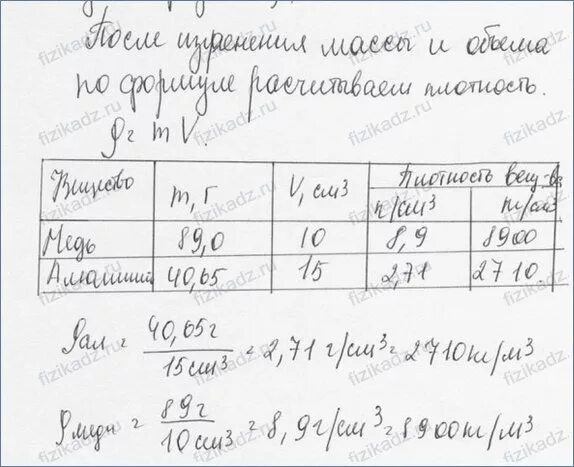 После измерения массы и объема
по формуле расчитываем плотность.
ρ = m V.
Вещество m, г V, см³ Плотность вещ-ва
г/см³ кг/см³
Медь 89,0 10 8,9 8900
Алюминий 40,65 15 2,71 2710
ρал = 40,65г / 15см³ = 2,71 г/см³ = 2710кг/м³
ρмеди = 89г / 10см³ = 8,9г/см³ = 8900кг/м³
fizikadz.ru